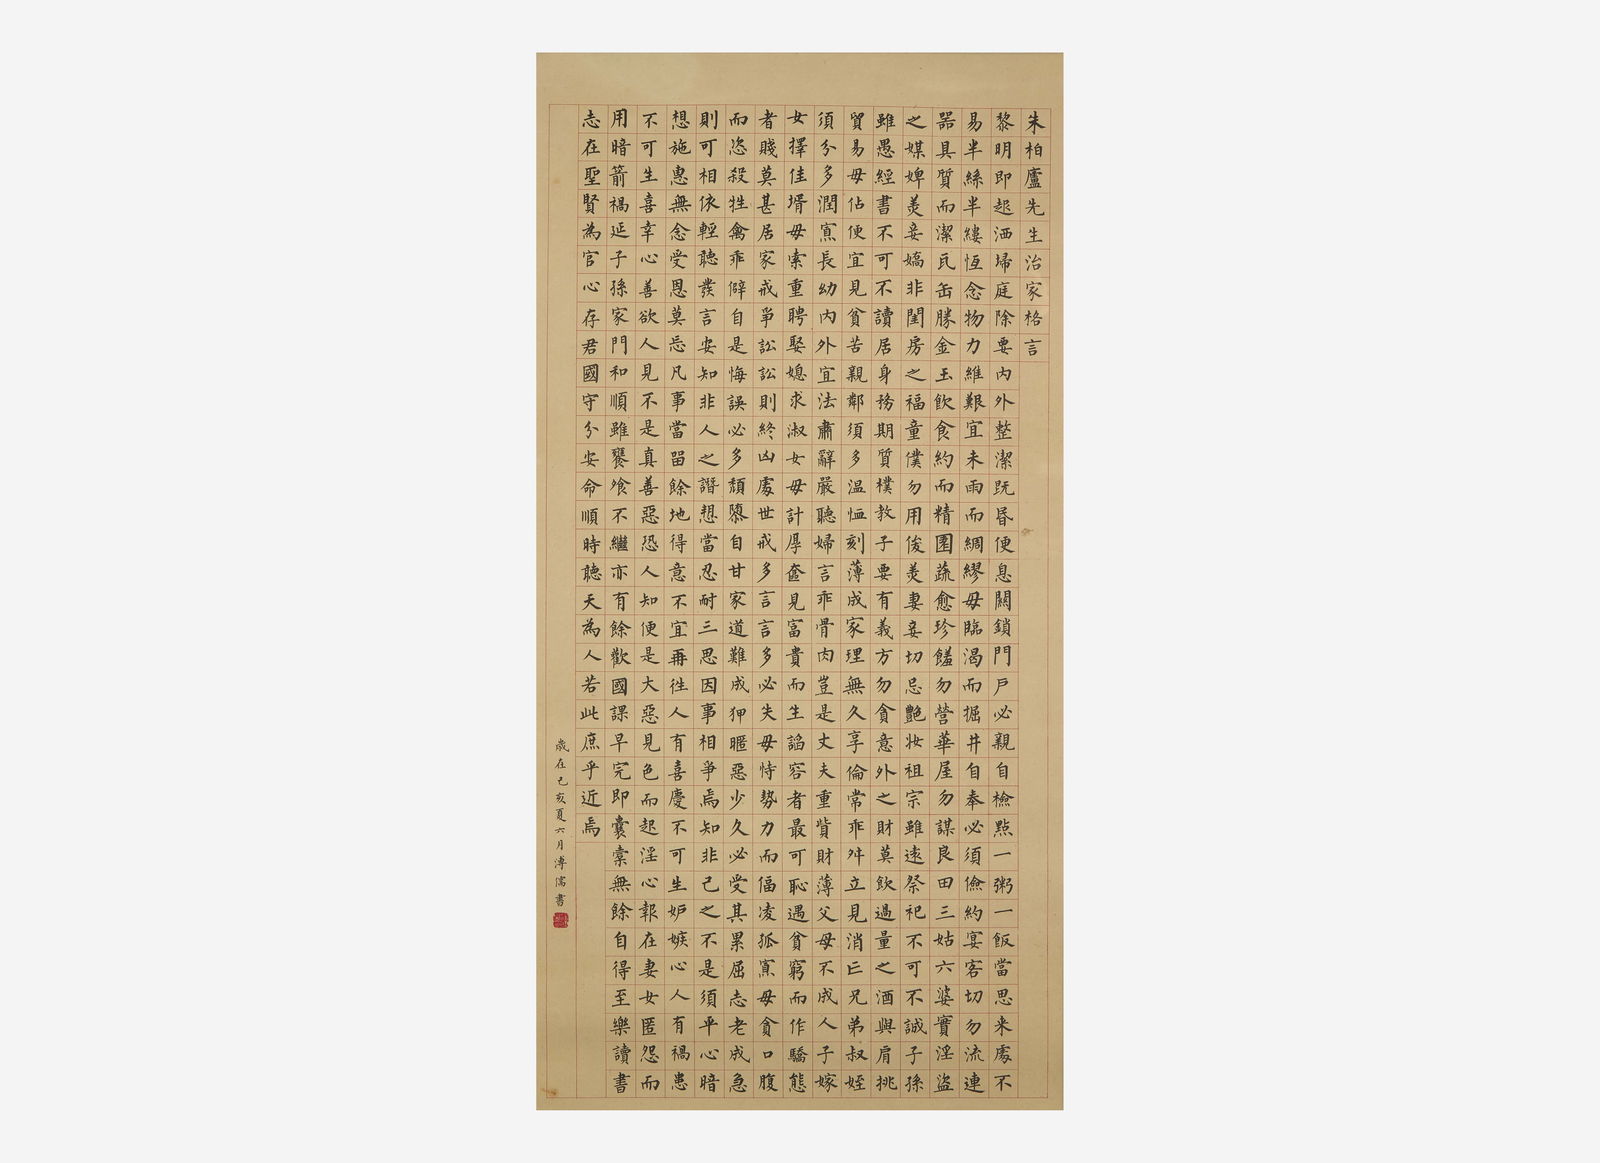 朱柏廬先生治家格言
黎明即起洒埽庭除要內外整潔既昬便息關鎖門戶必親自檢點一粥一飯當思来處不
易半絲半縷恆念物力維艱宜未雨而綢繆毋臨渴而掘井自奉必須儉約宴客切勿流連
器具質而潔瓦缶勝金玉飲食約而精園蔬愈珍饈勿營華屋勿謀良田三姑六婆實淫盜
之媒婢美妾嬌非閨房之福童僕勿用俊美妻妾切忌艷妝祖宗雖遠祭祀不可不誠子孫
雖愚經書不可不讀居身務期質樸教子要有義方勿貪意外之財莫飲過量之酒與肩挑
貿易毋佔便宜見貧苦親鄰須多溫恤刻薄成家理無久享倫常乖舛立見消亡兄弟叔姪
須分多潤寡長幼內外宜法肅辭嚴聽婦言乖骨肉豈是丈夫重貲財薄父母不成人子嫁
女擇佳壻毋索重聘娶媳求淑女毋計厚奩見富貴而生諂容者最可恥遇貧窮而作驕態
者賤莫甚居家戒爭訟訟則終凶處世戒多言言多必失毋恃勢力而偪凌孤寡毋貪口腹
而恣殺牲禽乖僻自是悔誤必多頹隳自甘家道難成狎暱惡少久必受其累屈志老成急
則可相依輕聽發言安知非人之譖愬當忍耐三思因事相爭焉知非己之不是須平心暗
想施惠無念受恩莫忘凡事當留餘地得意不宜再往人有喜慶不可生妒嫉心人有禍患
不可生喜幸心善欲人見不是真善惡恐人知便是大惡見色而起淫心報在妻女匿怨而
用暗箭禍延子孫家門和順雖饔飧不繼亦有餘歡國課早完即囊橐無餘自得至樂讀書
志在聖賢為官心存君國守分安命順時聽天為人若此庶乎近焉
歲在己亥夏六月溥儒書